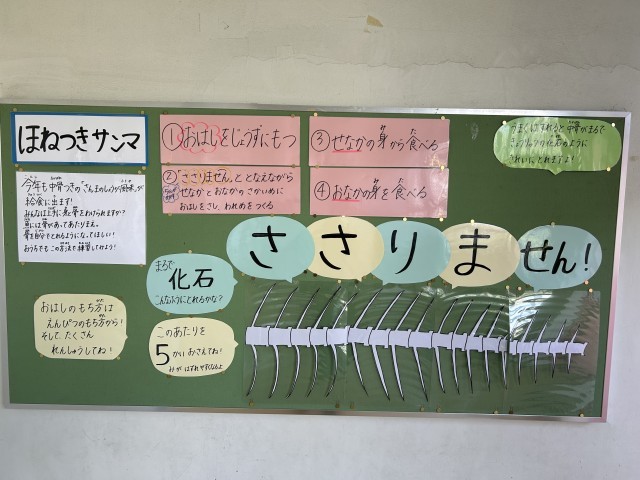 ほねつきサンマ
今年も中骨つきの「さんまのしょうが煮」が
給食に出ます!
みんなは上手に身と骨をわけられますか?
魚には骨があってあたりまえ。
骨を自分でとれるようになってほしい!
おうちでもこの方法で練習してみよう!
①おはしをじょうずにもつ
②「ささりません」ととなえながら
せなかとおなかのさかいめに
おはしをさし、われめをつくる
③せなかの身から食べる
④おなかの身を食べる
うまくはずれると中骨がまるで
きょうりゅうの化石のように
きれいにとれますよ!
ささりません!
まるで
化石
こんなふうにとれるかな?
このあたりを
5かいおさえてね!
みがはずれやすくなるよ
おはしのもち方は
えんぴつのもち方から!
そしてたくさん
れんしゅうしてね!